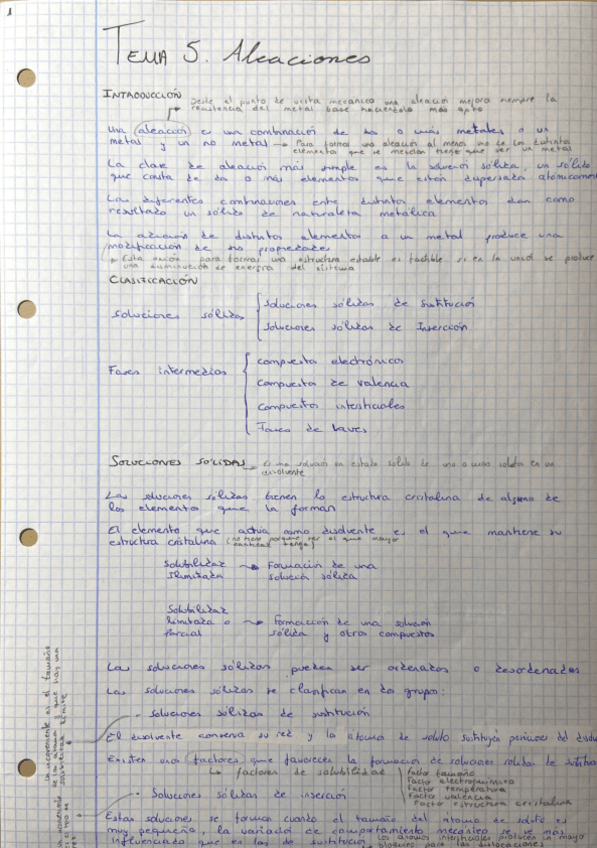 1
TEMA 5. Aleaciones
INTRODUCCIÓN Desde el punto de vista mecanico una aleación mejora siempre la
resistencia del metal base haciendolo más apto
Una aleación es una combinación de dos o más metales o un
metal y un no metal → Para formar una aleación al menos uno de los distintos
elementos que se mezclan tiene que ser un metal
La clase de aleación más simple es la solución sólida, un sólido
que consta de dos o más elementos que están dispersados atómicamen
Las diferentes combinaciones entre distintos elementos dan como
resultado un sólido de naturaleza metálica
La adición de distintos elementos a un metal produce una
modificación de sus propiedades
Esta unión para formar una estructura estable es factible si en la unión se produce
una disminución de energía del sistema
CLASIFICACIÓN
Soluciones sólidas
Soluciones sólidas de Sustitución
Soluciones sólidas de Inserción
Fases intermedias
Compuestos electrónicos
Compuestos de Valencia
Compuestos intersticiales
Fases de Laves
SOLUCIONES SÓLIDAS → Es una solución en estado sólido de uno o más solutos en un
disolvente
Las soluciones sólidas tienen la estructura cristalina de alguno de
los elementos que la forman
El elemento que actua como disolvente es el que mantiene su
estructura cristalina (no tiene porque ser el que mayor
cantidad tenga)
Solubilidad → Formación de una
Ilimitada solución sólida
Solubilidad
limitada o → Formación de una solución
Parcial sólida y otros compuestos
Las soluciones sólidas pueden ser ordenadas o desordenadas
Las soluciones sólidas se clasifican en dos grupos:
- Soluciones sólidas de sustitución
El disolvente conserva su red y los átomos de soluto sustituyen posiciones del disolv
Existen unos factores que favorecen la formación de soluciones solidas de sustitució
↳ factores de solubilidad
Factor tamaño
Factor electroquímico
Factor temperatura
Factor valencia
Factor estructura cristalina
- Soluciones sólidas de inserción
Estas soluciones se forman cuando el tamaño del átomo de soluto es
muy pequeño, la variación de comportamiento mecánico se ve más
influenciado que en las de sustitución Los átomos intersticiales producen un mayor
bloqueo para las dislocaciones